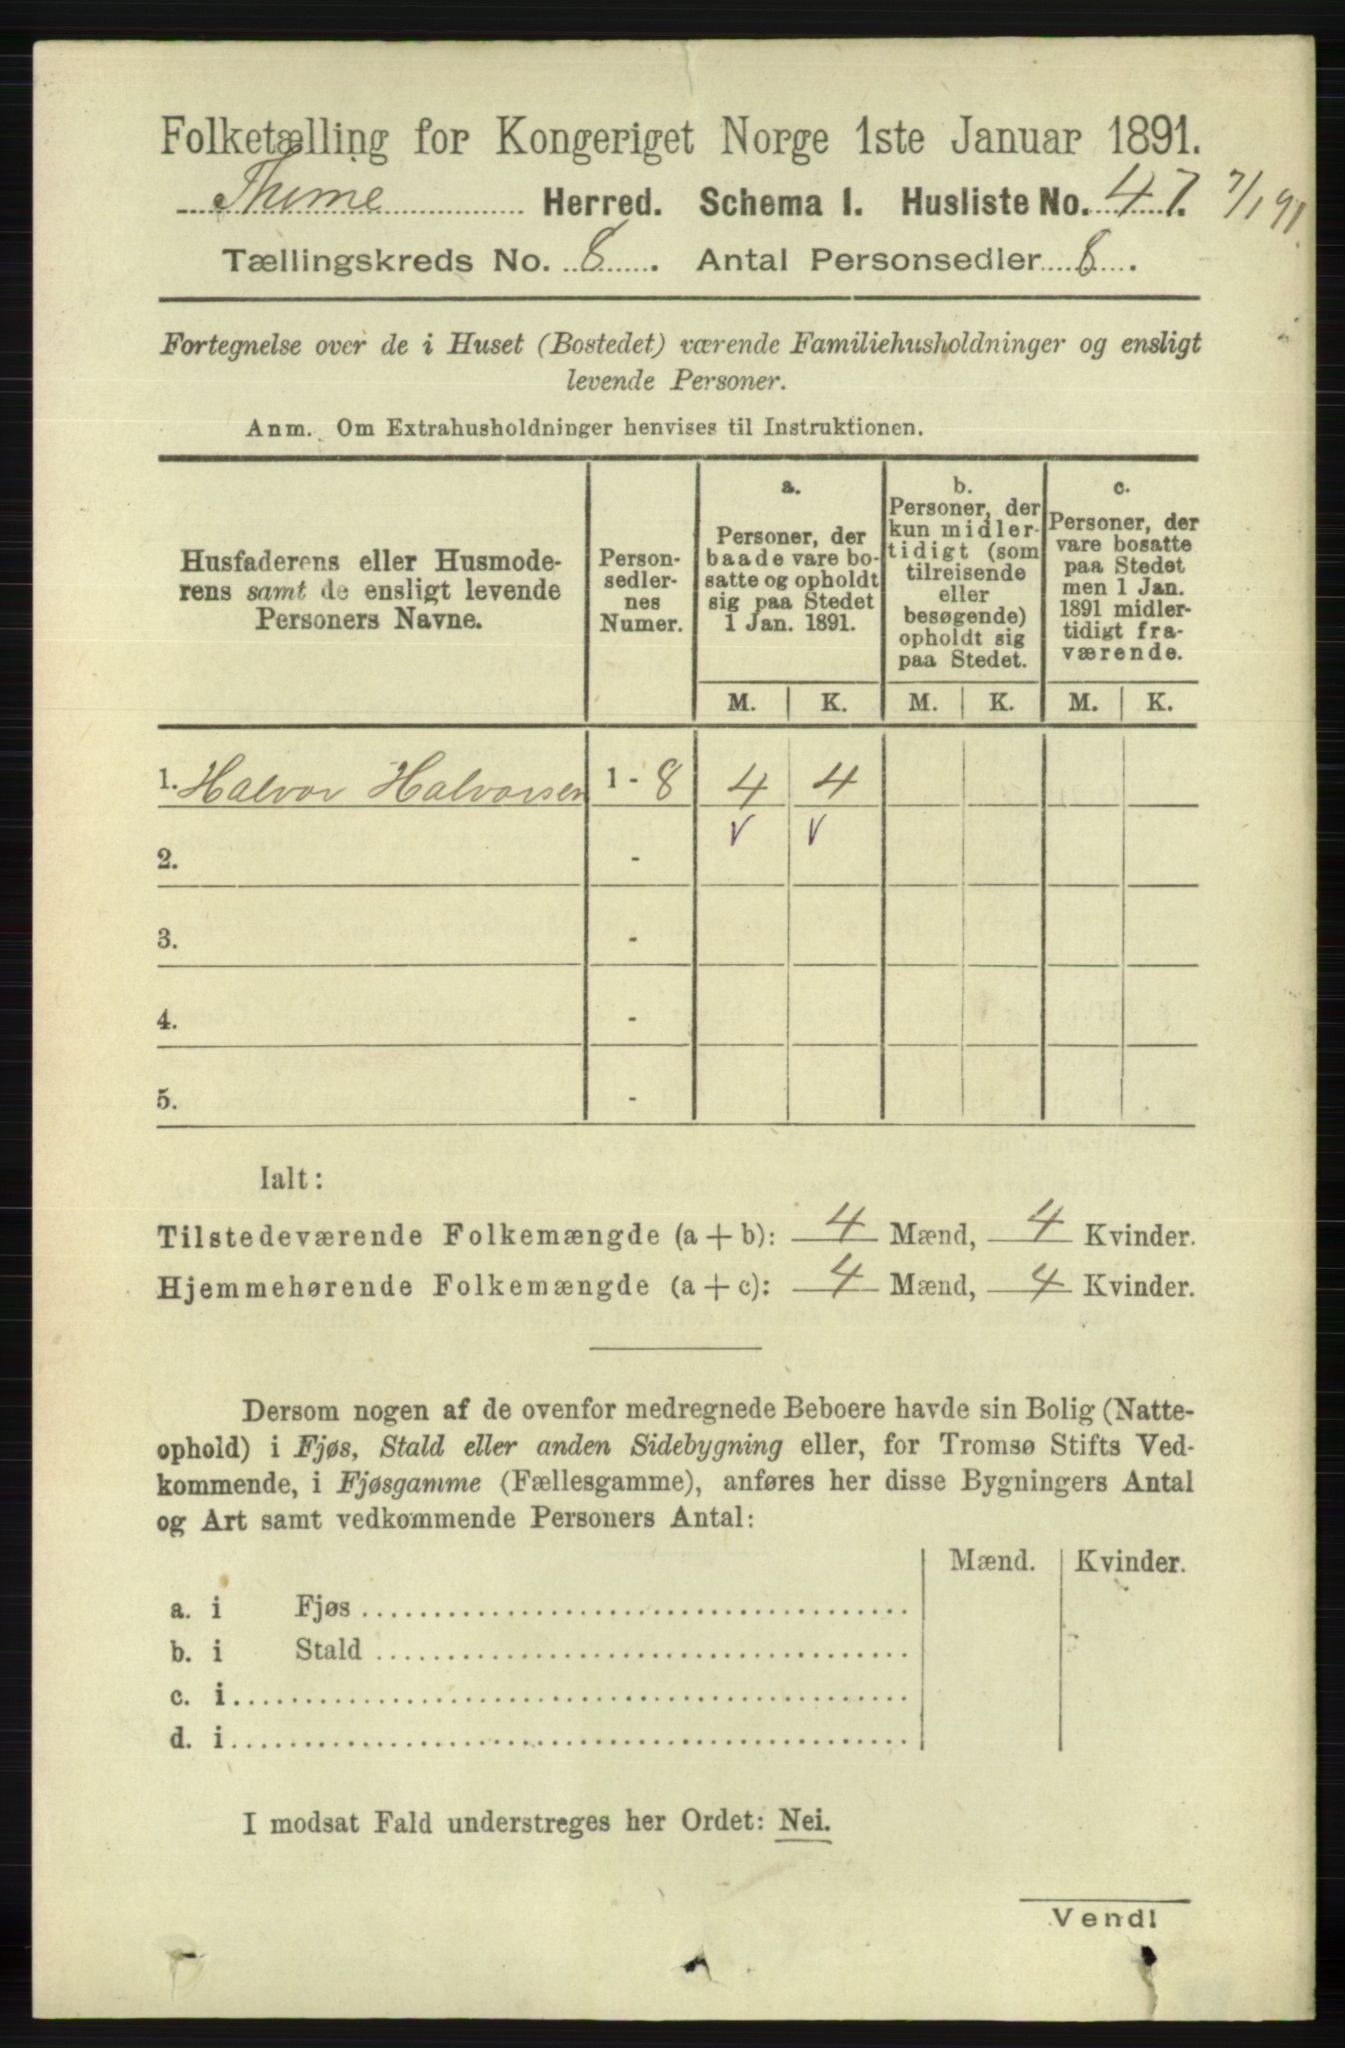 Folketælling for Kongeriget Norge 1ste Januar 1891.
Thime Herred. Schema 1. Husliste No. 47. 7/1 91.
Tællingskreds No. 8. Antal Personsedler 8.
Fortegnelse over de i Huset (Bostedet) værende Familiehusholdninger og ensligt
levende Personer.
Anm. Om Extrahusholdninger henvises til Instruktionen.
Husfaderens eller Husmode-
rens samt de ensligt levende
Personers Navne.
Person-
sedler-
nes
Numer.
a.
Personer, der
baade vare bo-
satte og opholdt
sig paa Stedet
1 Jan. 1891.
b.
Personer, der
kun midler-
tidigt (som
tilreisende
eller
besøgende)
opholdt sig
paa Stedet.
c.
Personer, der
vare bosatte
paa Stedet
men 1 Jan.
1891 midler-
tidigt fra-
værende.
M. K. M. K. M. K.
1. Halvor Halvorsen 1 - 8 4 4
2. - v v
3. -
4. -
5. -
Ialt:
Tilstedeværende Folkemængde (a + b): 4 Mænd, 4 Kvinder.
Hjemmehørende Folkemængde (a + c): 4 Mænd, 4 Kvinder.
Dersom nogen af de ovenfor medregnede Beboere havde sin Bolig (Natte-
ophold) i Fjøs, Stald eller anden Sidebygning eller, for Tromsø Stifts Ved-
kommende, i Fjøsgamme (Fællesgamme), anføres her disse Bygningers Antal
og Art samt vedkommende Personers Antal:
Mænd. Kvinder.
a. i Fjøs
b. i Stald
c. i
d. i
I modsat Fald understreges her Ordet: Nei.
Vend!